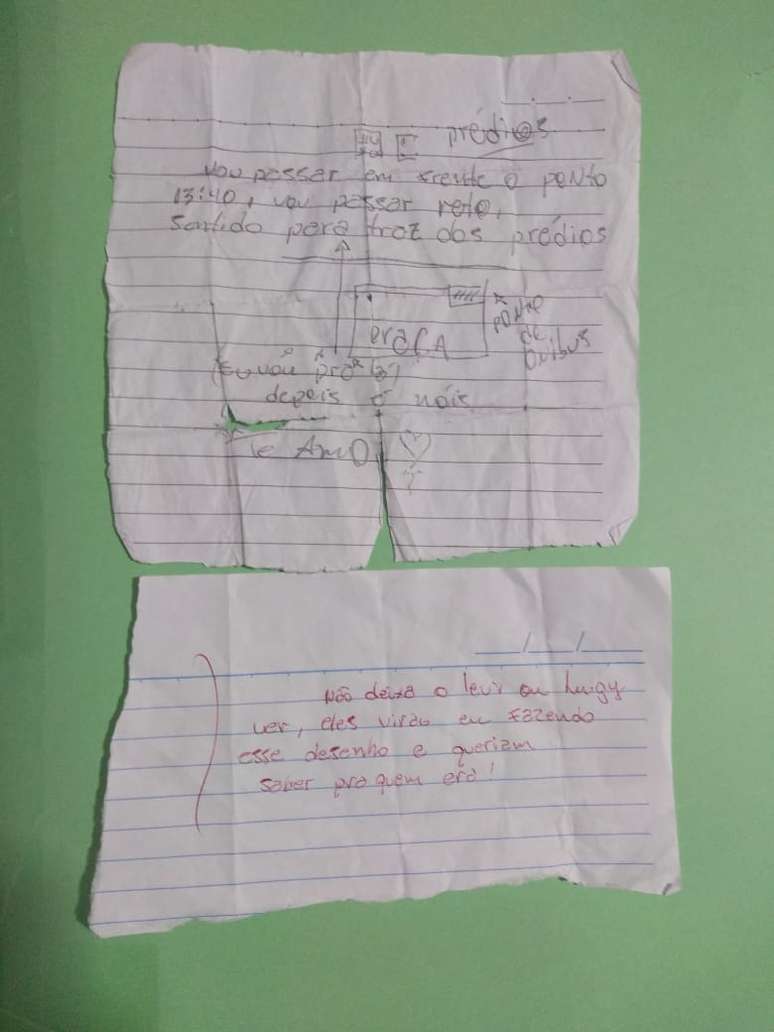 prédios
Vou passar em frente o ponto
13:40, vou passar reto,
Sentido para traz dos prédios
PRAÇA
PONTO
de
ÔNIBUS
(Eu vou pra
depois é nóis
Te AmO
Não deixa o levi ou
ver, eles virão eu fazendo
esse desenho e queriam
saber pra quem era!